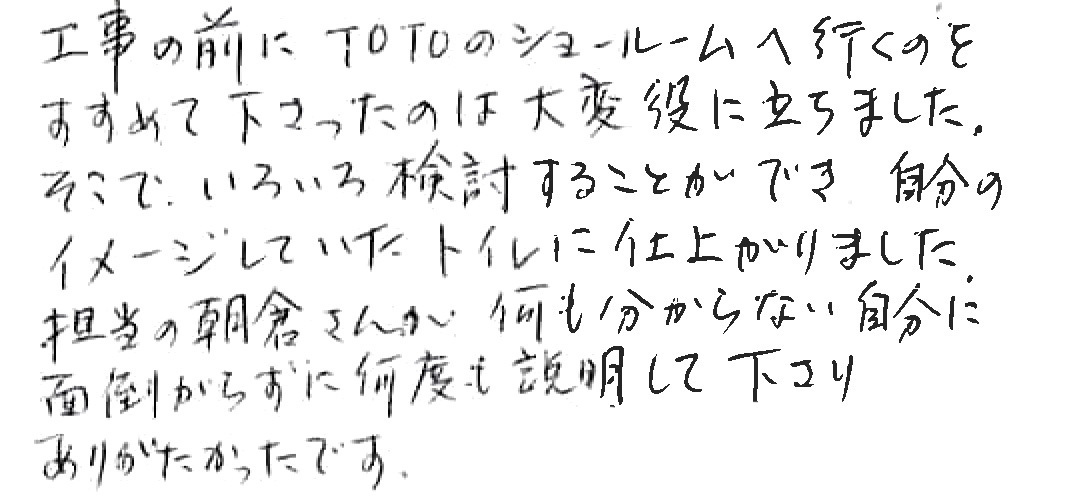 工事の前に TOTOのショールームへ行くのを
すすめて下さったのは大変役に立ちました.
そこで.いろいろ検討することができ 自分の
イメージしていたトイレに仕上がりました.
担当の朝倉さんが 何も分からない自分に
面倒がらずに何度も説明して下さり
ありがたかったです.